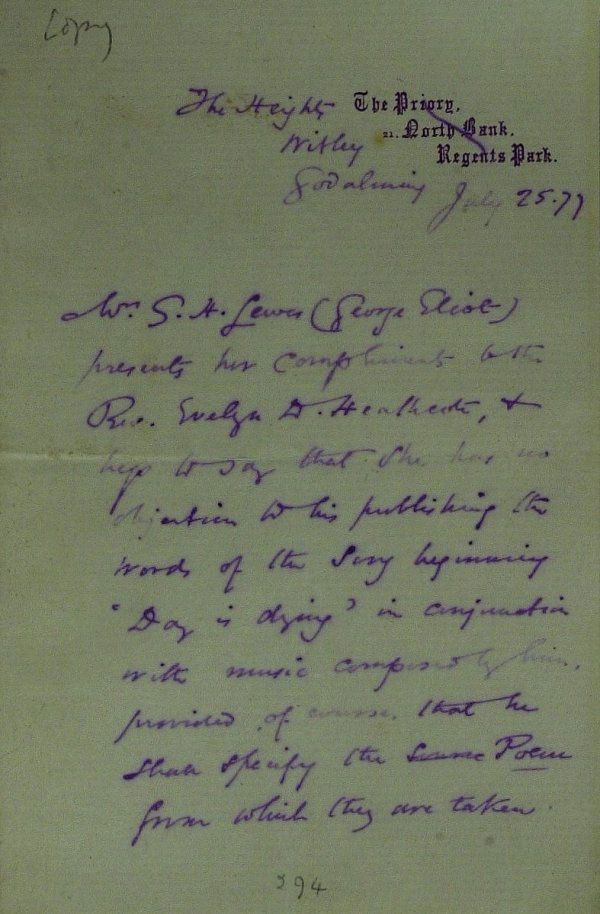 Copy
The Heights The Priory,
Witley 21. North Bank,
Godalming Regents Park.
July 25. 77
Mrs G. H. Lewes (George Eliot)
presents her compliments to the
Rev. Evelyn D. Heathcote, &
begs to say that she has no
objection to his publishing the
words of the Song beginning
"Day is dying" in conjunction
with music composed by him,
provided, of course, that he
shall specify the source Poem
from which they are taken.
294